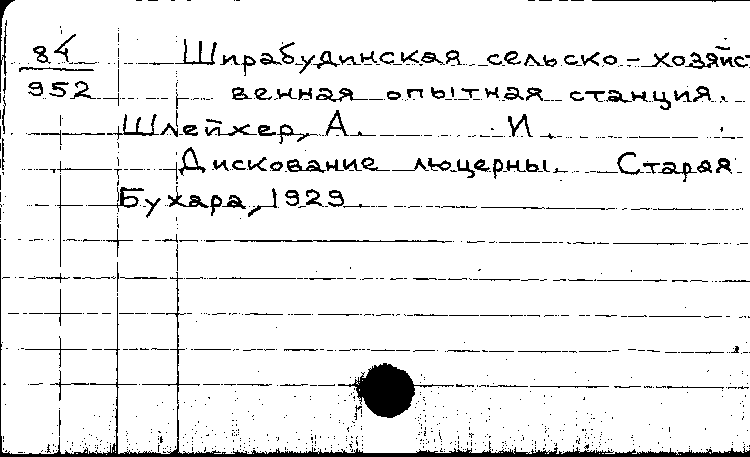 84
952
Ширабудинская сельско-хозяйст
венная опытная станция.
Шлейхер, А. И.
Дискование люцерны. Старая
Бухара, 1929.